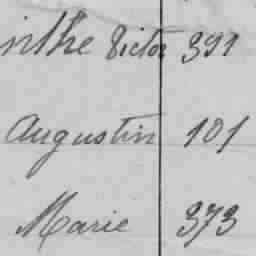 inthe Victor 391
Augustin 101
Marie 373